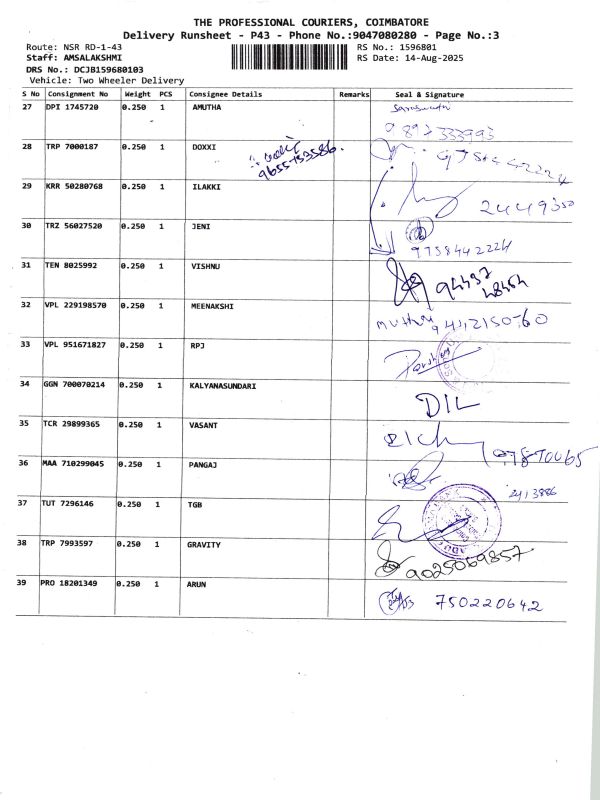 THE PROFESSIONAL COURIERS, COIMBATORE
Delivery Runsheet - P43 - Phone No.:9047080280 - Page No.:3
Route: NSR RD-1-43
RS No.: 1596801
Staff: AMSALAKSHMI
RS Date: 14-Aug-2025
DRS No.: DCJB159680103
Vehicle: Two Wheeler Delivery
S No Consignment No Weight PCS Consignee Details Remarks Seal & Signature
27 DPI 1745720 0.250 1 AMUTHA
28 TRP 7000187 0.250 1 DOXXI
29 KRR 50280768 0.250 1 ILAKKI
2449350
30 TRZ 56027520 0.250 1 JENI
9758442224
31 TEN 8025992 0.250 1 VISHNU
94437
48464
32 VPL 229198570 0.250 1 MEENAKSHI
33 VPL 951671827 0.250 1 RPJ
34 GGN 700070214 0.250 1 KALYANASUNDARI
DIL
35 TCR 29899365 0.250 1 VASANT
36 MAA 710299045 0.250 1 PANGAJ
2413886
37 TUT 7296146 0.250 1 TGB
38 TRP 7993597 0.250 1 GRAVITY
9025069857
39 PRO 18201349 0.250 1 ARUN
750220642